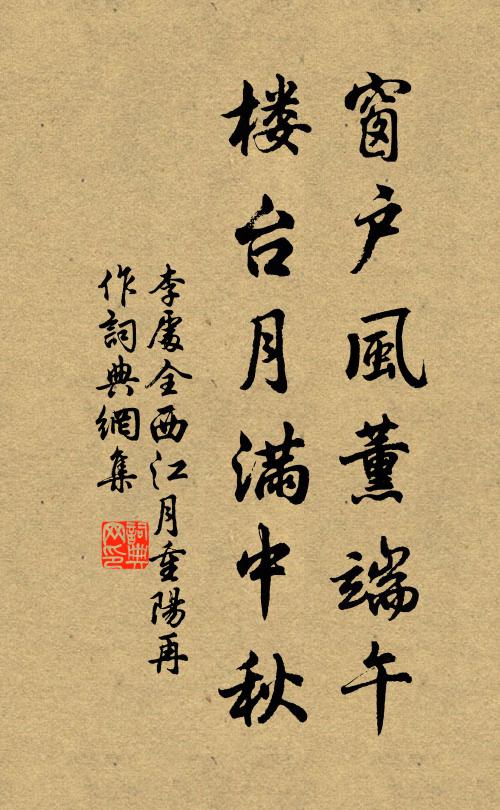 窗户風薰端午
楼台月满中秋
李處全西江月重陽再
作詞典網集
詞典
网印